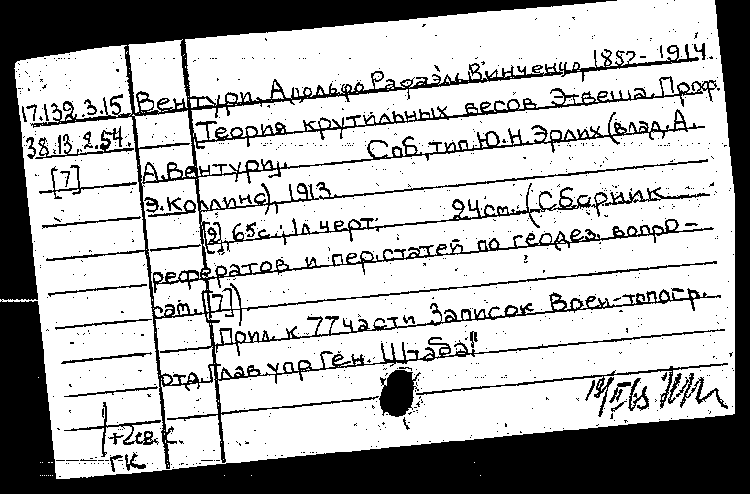 17.132.3.15 Вентури, Адольфо Рафаэль Винченцо, 1852-1914.
38.13.2.54. Теория крутильных весов Этвеша. Проф.
[7] А. Вентури. Спб, тип. Ю.Н. Эрлих (влад. А.
Э. Коллинс), 1913.
[2], 65 с.; 1 л. черт. 24 см. (Сборник
рефератов и пер. статей по геодез. вопро-
сам. [7])
Прил. к 77 части Записок Воен-топогр.
отд. Глав. упр Ген. Штаба"
+2св. к.
ГК